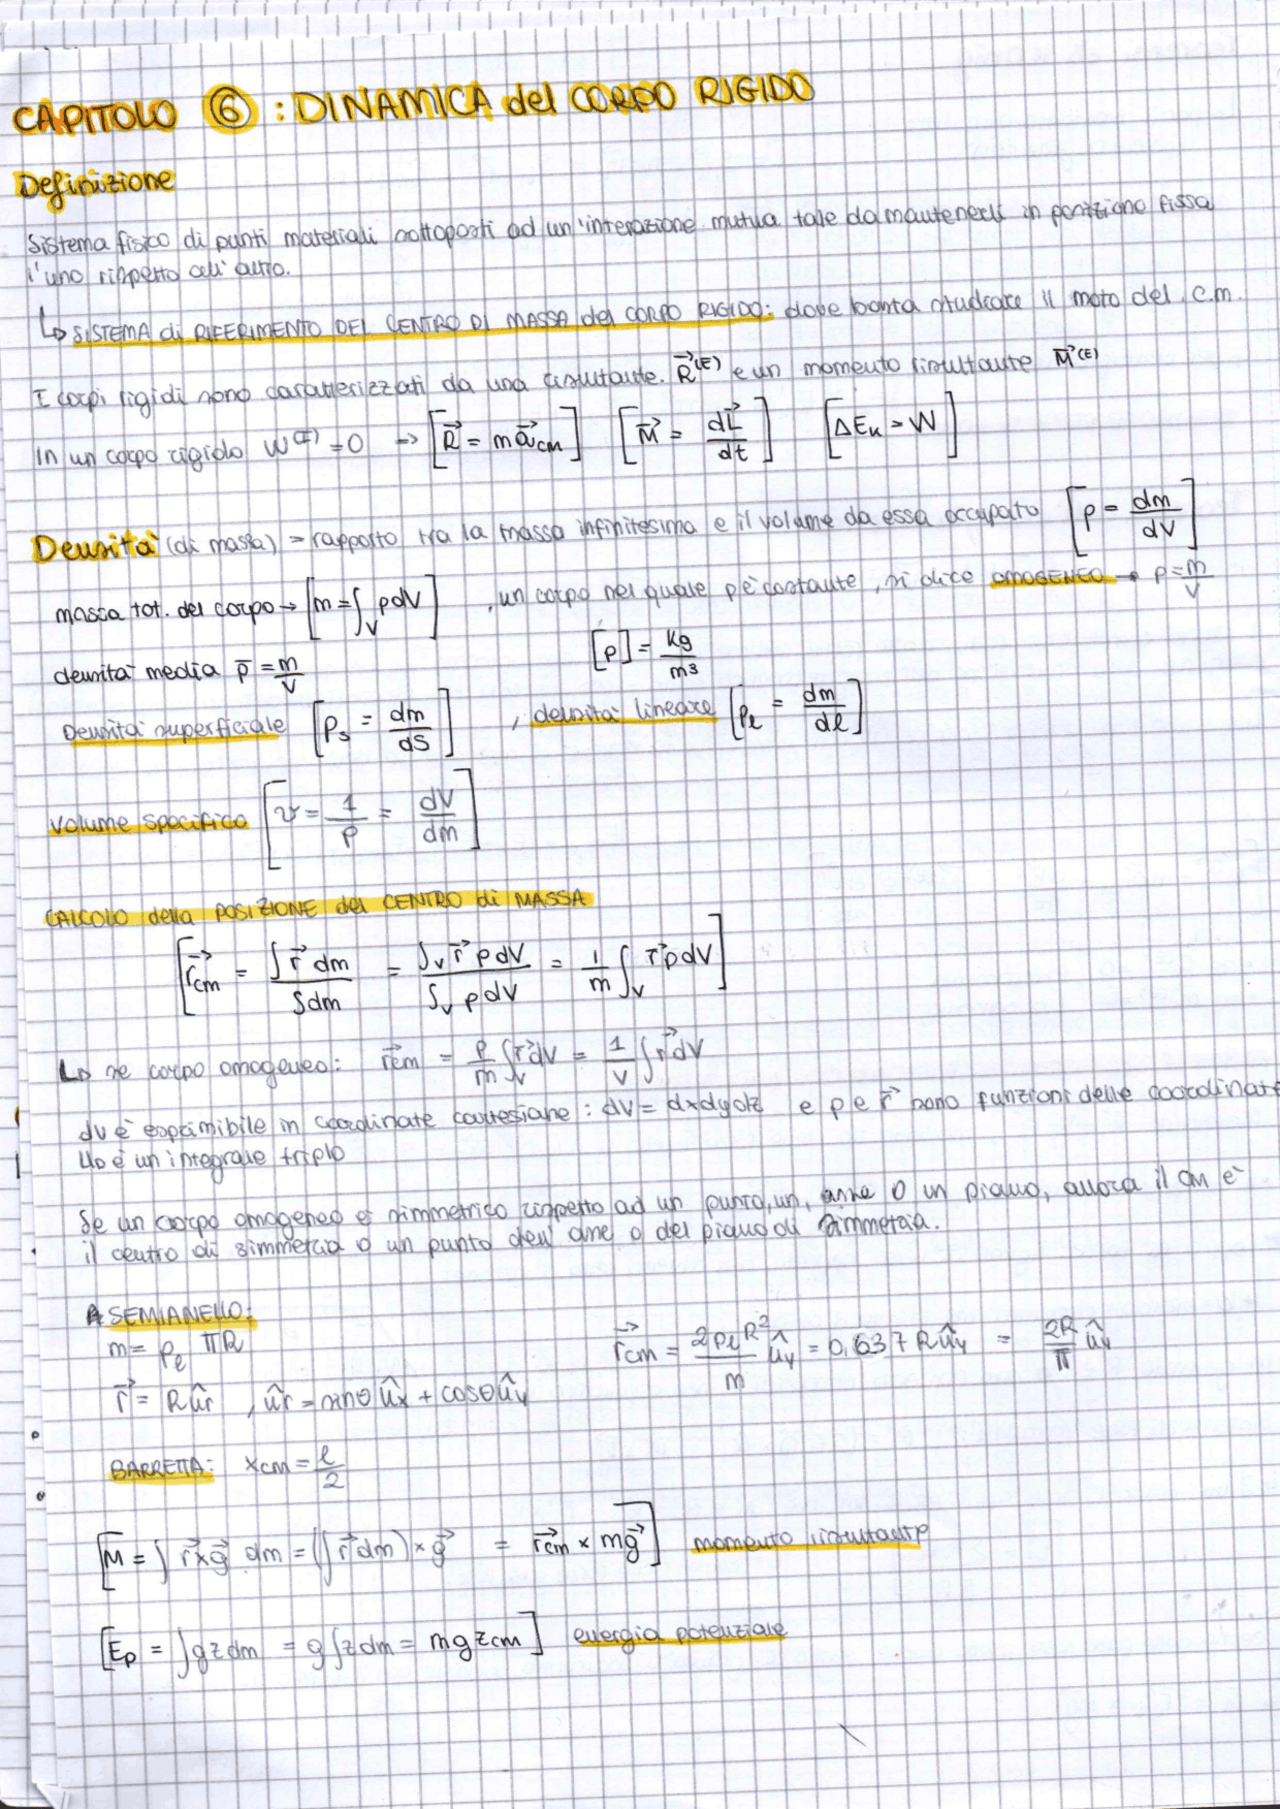 CAPITOLO ⑥: DINAMICA del CORPO RIGIDO
Definizione
Sistema fisico di punti materiali sottoposti ad un'interazione mutua tale da mantenerli in posizione fissa
l'uno rispetto all'altro.
↳ SISTEMA di RIFERIMENTO DEL CENTRO DI MASSA del CORPO RIGIDO: dove basta studiare il moto del c.m.
I corpi rigidi sono caratterizzati da una risultante R⃗^(E) e un momento risultante M⃗^(E)
In un corpo rigido W^(I) = 0 → [R⃗ = m a⃗_CM] [M⃗ = dL⃗/dt] [ΔE_k = W]
Densità (di massa) = rapporto tra la massa infinitesima e il volume da essa occupato [ρ = dm/dV]
massa tot. del corpo → [m = ∫_V ρdV] , un corpo nel quale ρ è costante, si dice OMOGENEO → ρ = m/V
densità media ρ̄ = m/V [ρ] = kg/m³
Densità superficiale [ρ_s = dm/dS] , densità lineare [ρ_l = dm/dl]
Volume specifico [v = 1/ρ = dV/dm]
CALCOLO della POSIZIONE del CENTRO di MASSA
[r⃗_cm = ∫r⃗ dm / ∫dm = ∫_V r⃗ ρdV / ∫_V ρdV = 1/m ∫_V r⃗ρdV]
↳ se corpo omogeneo: r⃗_cm = ρ/m ∫_V r⃗dV = 1/V ∫r⃗dV
dV è esprimibile in coordinate cartesiane: dV = dxdydz e ρ e r⃗ sono funzioni delle coordinate
↳ è un integrale triplo
Se un corpo omogeneo è simmetrico rispetto ad un punto, un, asse o un piano, allora il cm è
il centro di simmetria o un punto dell'asse o del piano di simmetria.
SEMIANELLO:
m = ρ_l πR r⃗_cm = 2ρ_l R²/m û_y = 0,637 R û_y = 2R/π û_y
r⃗ = R û_r , û_r = sinθ û_x + cosθ û_y
BARRETTA: x_cm = l/2
[M = ∫ r⃗×g⃗ dm = (∫ r⃗dm) × g⃗ = r⃗_cm × mg⃗] momento risultante
[E_p = ∫gzdm = g∫zdm = mgz_cm] energia potenziale